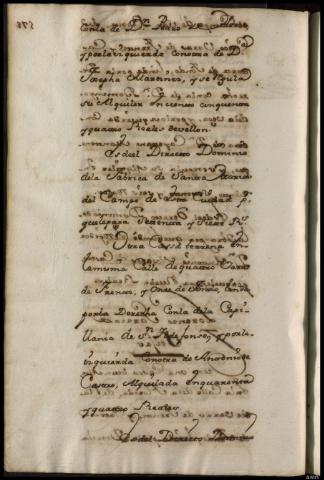 Con la de Dn. Pedro
y por la izquierda Con otra de Da.
Josepha Martinez, y se
su Alquiler en ciento cinquenta
y quatro Reales de vellon.
Es del Directto Dominio
de la Fabrica de Santa Maria
del Campo de esta Ciudad p.
quele paga treinta y siete Rs.
Otra Casa terrena en
la misma Calle de quatro varas
de frente, y Onze de fondo, linda
por la Derecha Con la de la Cape-
llania de Sn. Ildefonso, y por la
izquierda Con otra de Antonio de
Castro, Alquilada en quarenta
y quatro Reales
Es del Directto Dominio